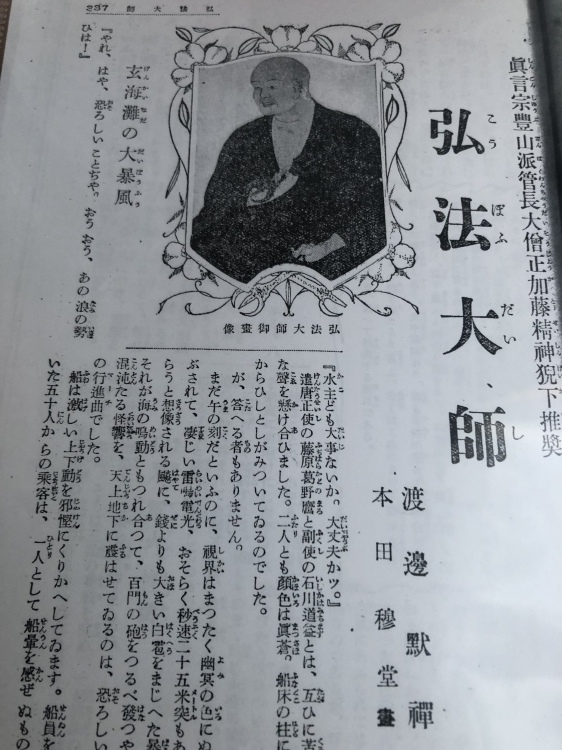 237
弘法大師
眞言宗豊山派管長大僧正加藤精神猊下推奬
弘法大師
こうぼふだいし
渡邊默禪
本田穆堂畫
弘法大師御畫像
玄海灘の大暴風
げんかいなだ だいぼうふう
『やれ、はや、恐ろしいことぢや。おうおう、あの浪の勢
ひは！』
『水主ども大事ないか。大丈夫かッ。』
遣唐正使の藤原葛野麿と副使の石川道益とは、互ひに苦
な聲を懸け合ひました。二人とも顏色は眞蒼。船床の柱に
からひしとしがみついてゐるのでした。
が、答へる者もありません。
まだ午の刻だといふのに、視界はまつたく幽冥の色にぬ
ぶされて、凄じい雷鳴電光、おそらく秒速二十五米突もあ
らうと想像される颶に、錢よりも大きい白雹をまじへた暴
それが海の鳴動ともつれ合つて、百門の砲をつるべ發つや
混沌たる怪響を、天上地下に はせてゐるのは、恐ろしい
の行進曲でした。
船は激しい上下動を邪慳にくりかへしてゐます。船員を
いた五十人からの乘客は、一人として船暈を感ぜぬもの